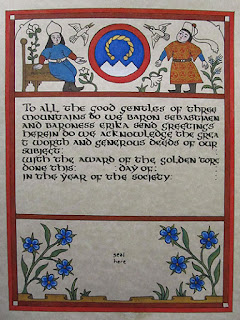 To all the good gentles of three
mountains do we baron sebastiaen
and baroness erika send greetings
herein do we acknowledge the grea
t worth and generous deeds of our
subject:
with the award of the golden torc
done this: day of:
in the year of the society:
seal
here